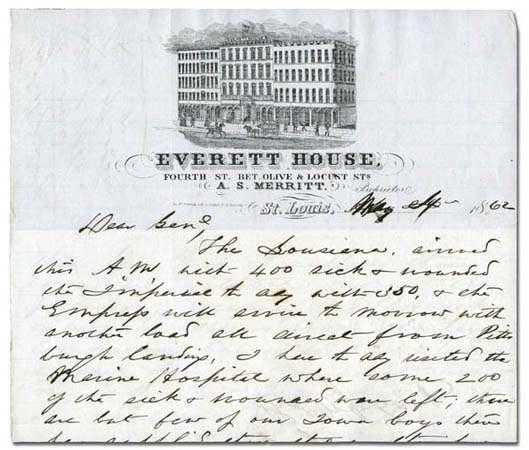 EVERETT HOUSE,
FOURTH ST. BET. OLIVE & LOCUST STS
A. S. MERRITT. Proprietor
St. Louis, May 1862
Dear Genl,
The Louisiana, arrived
this A.M. with 400 sick & wounded
the Imperial to day with 350, & the
Empress will arrive to morrow with
another load all direct from Pitts
burgh landing, I have to day visited the
Marine Hospital where some 200
of the sick & wounded were left, there
are but few of our Iowa boys there